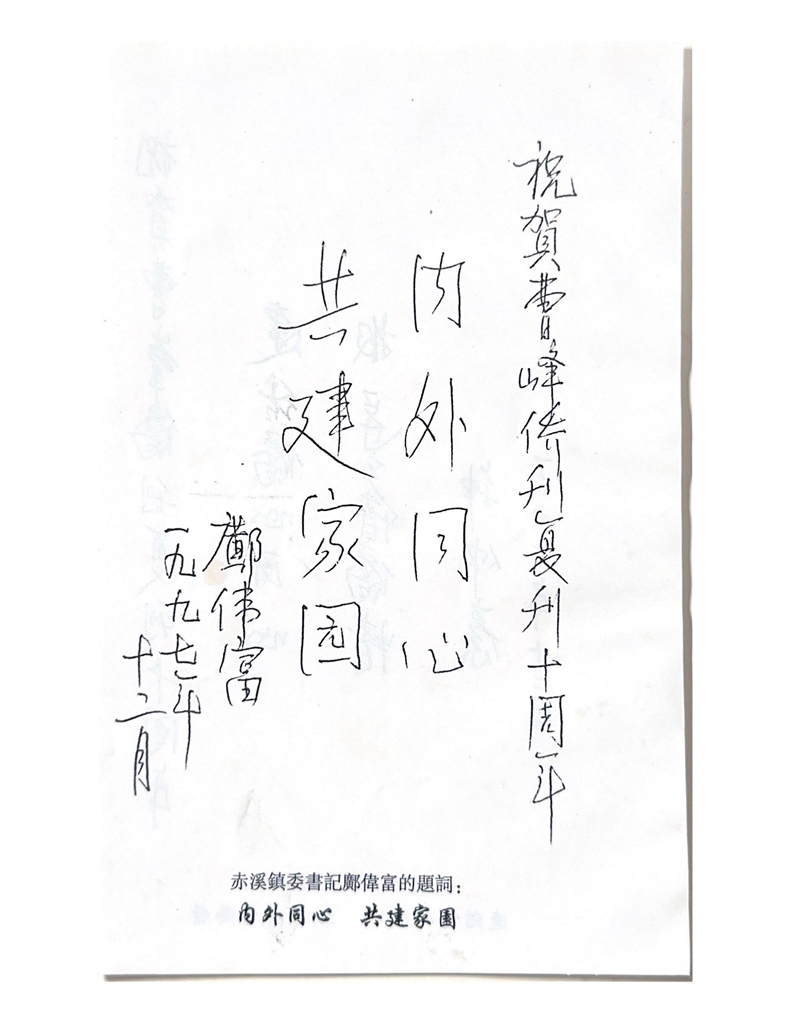 祝賀曹峰侨刊复刊十周年
内外同心
共建家园
鄺伟富
一九九七年
十二月
赤溪鎮委書記鄺偉富的題詞：
内外同心　共建家園